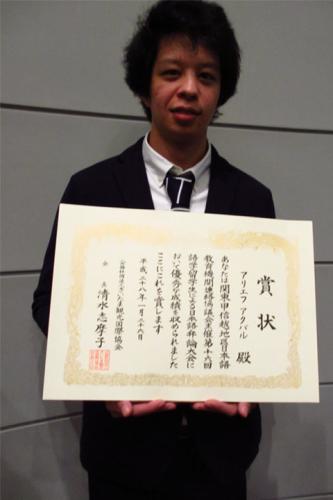 賞状
アリエフ アクバル 殿
あなたは関東甲信越地区日本語
教育機関連絡協議会主催第十六回
語学留学生による日本語弁論大会に
おいて優秀な成績を収められました
ここにこれを賞します
平成二十八年一月二十六日
会長 清水志摩子